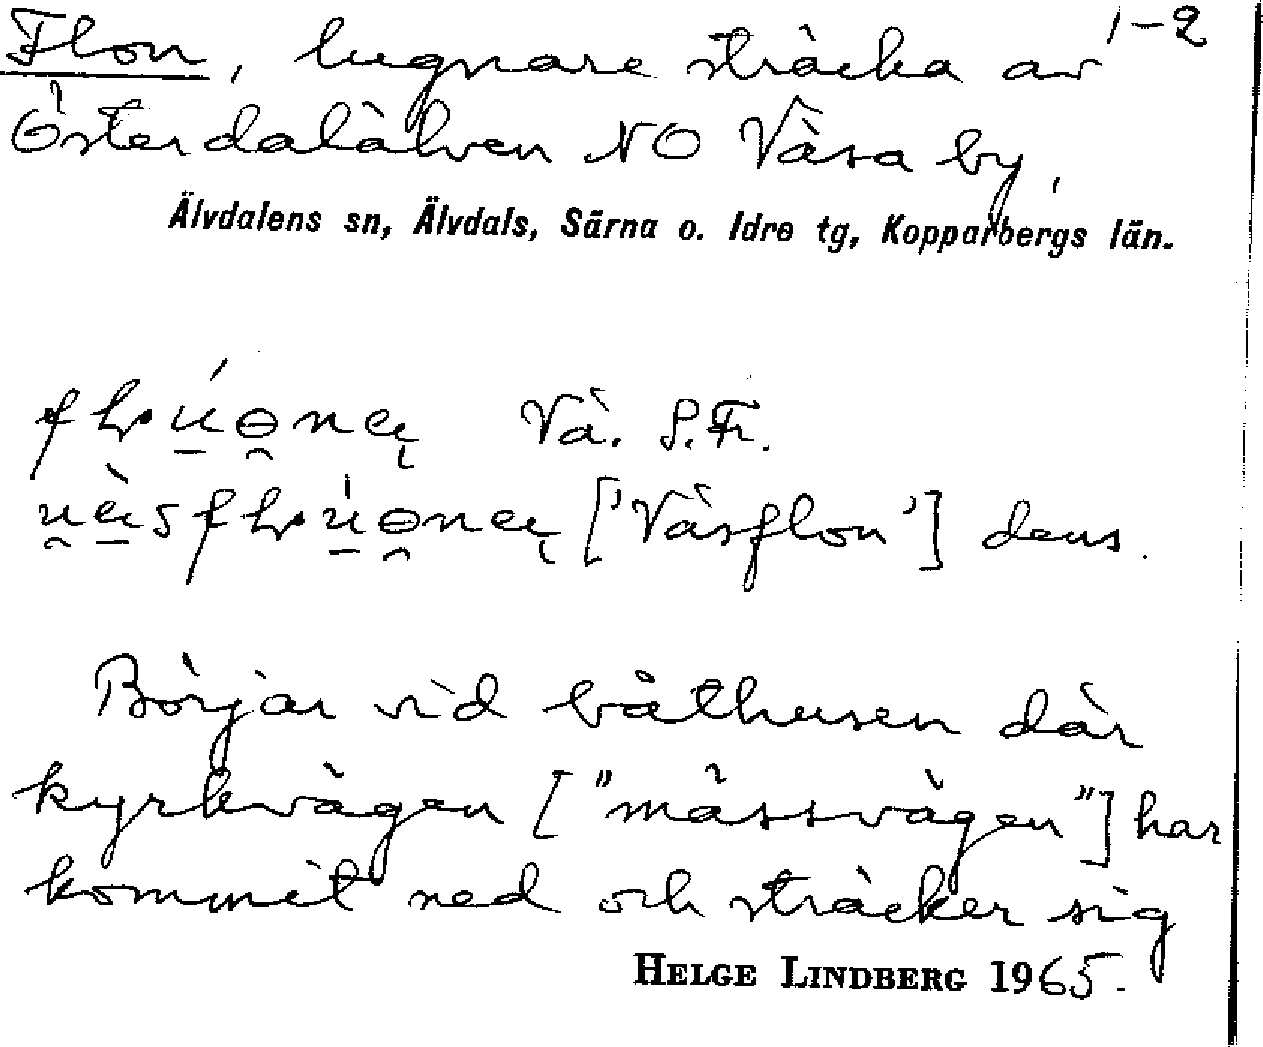 Flon, lugnare sträcka av 1-2
Österdalälven NO Väsa by,
Älvdalens sn, Älvdals, Särna o. Idre tg, Kopparbergs län.
Vä. S.Fr.
['Väsflon'] dens.
Börjar vid båthusen där
kyrkvägen ["mässvägen"] har
kommit ned och sträcker sig
HELGE LINDBERG 1965.